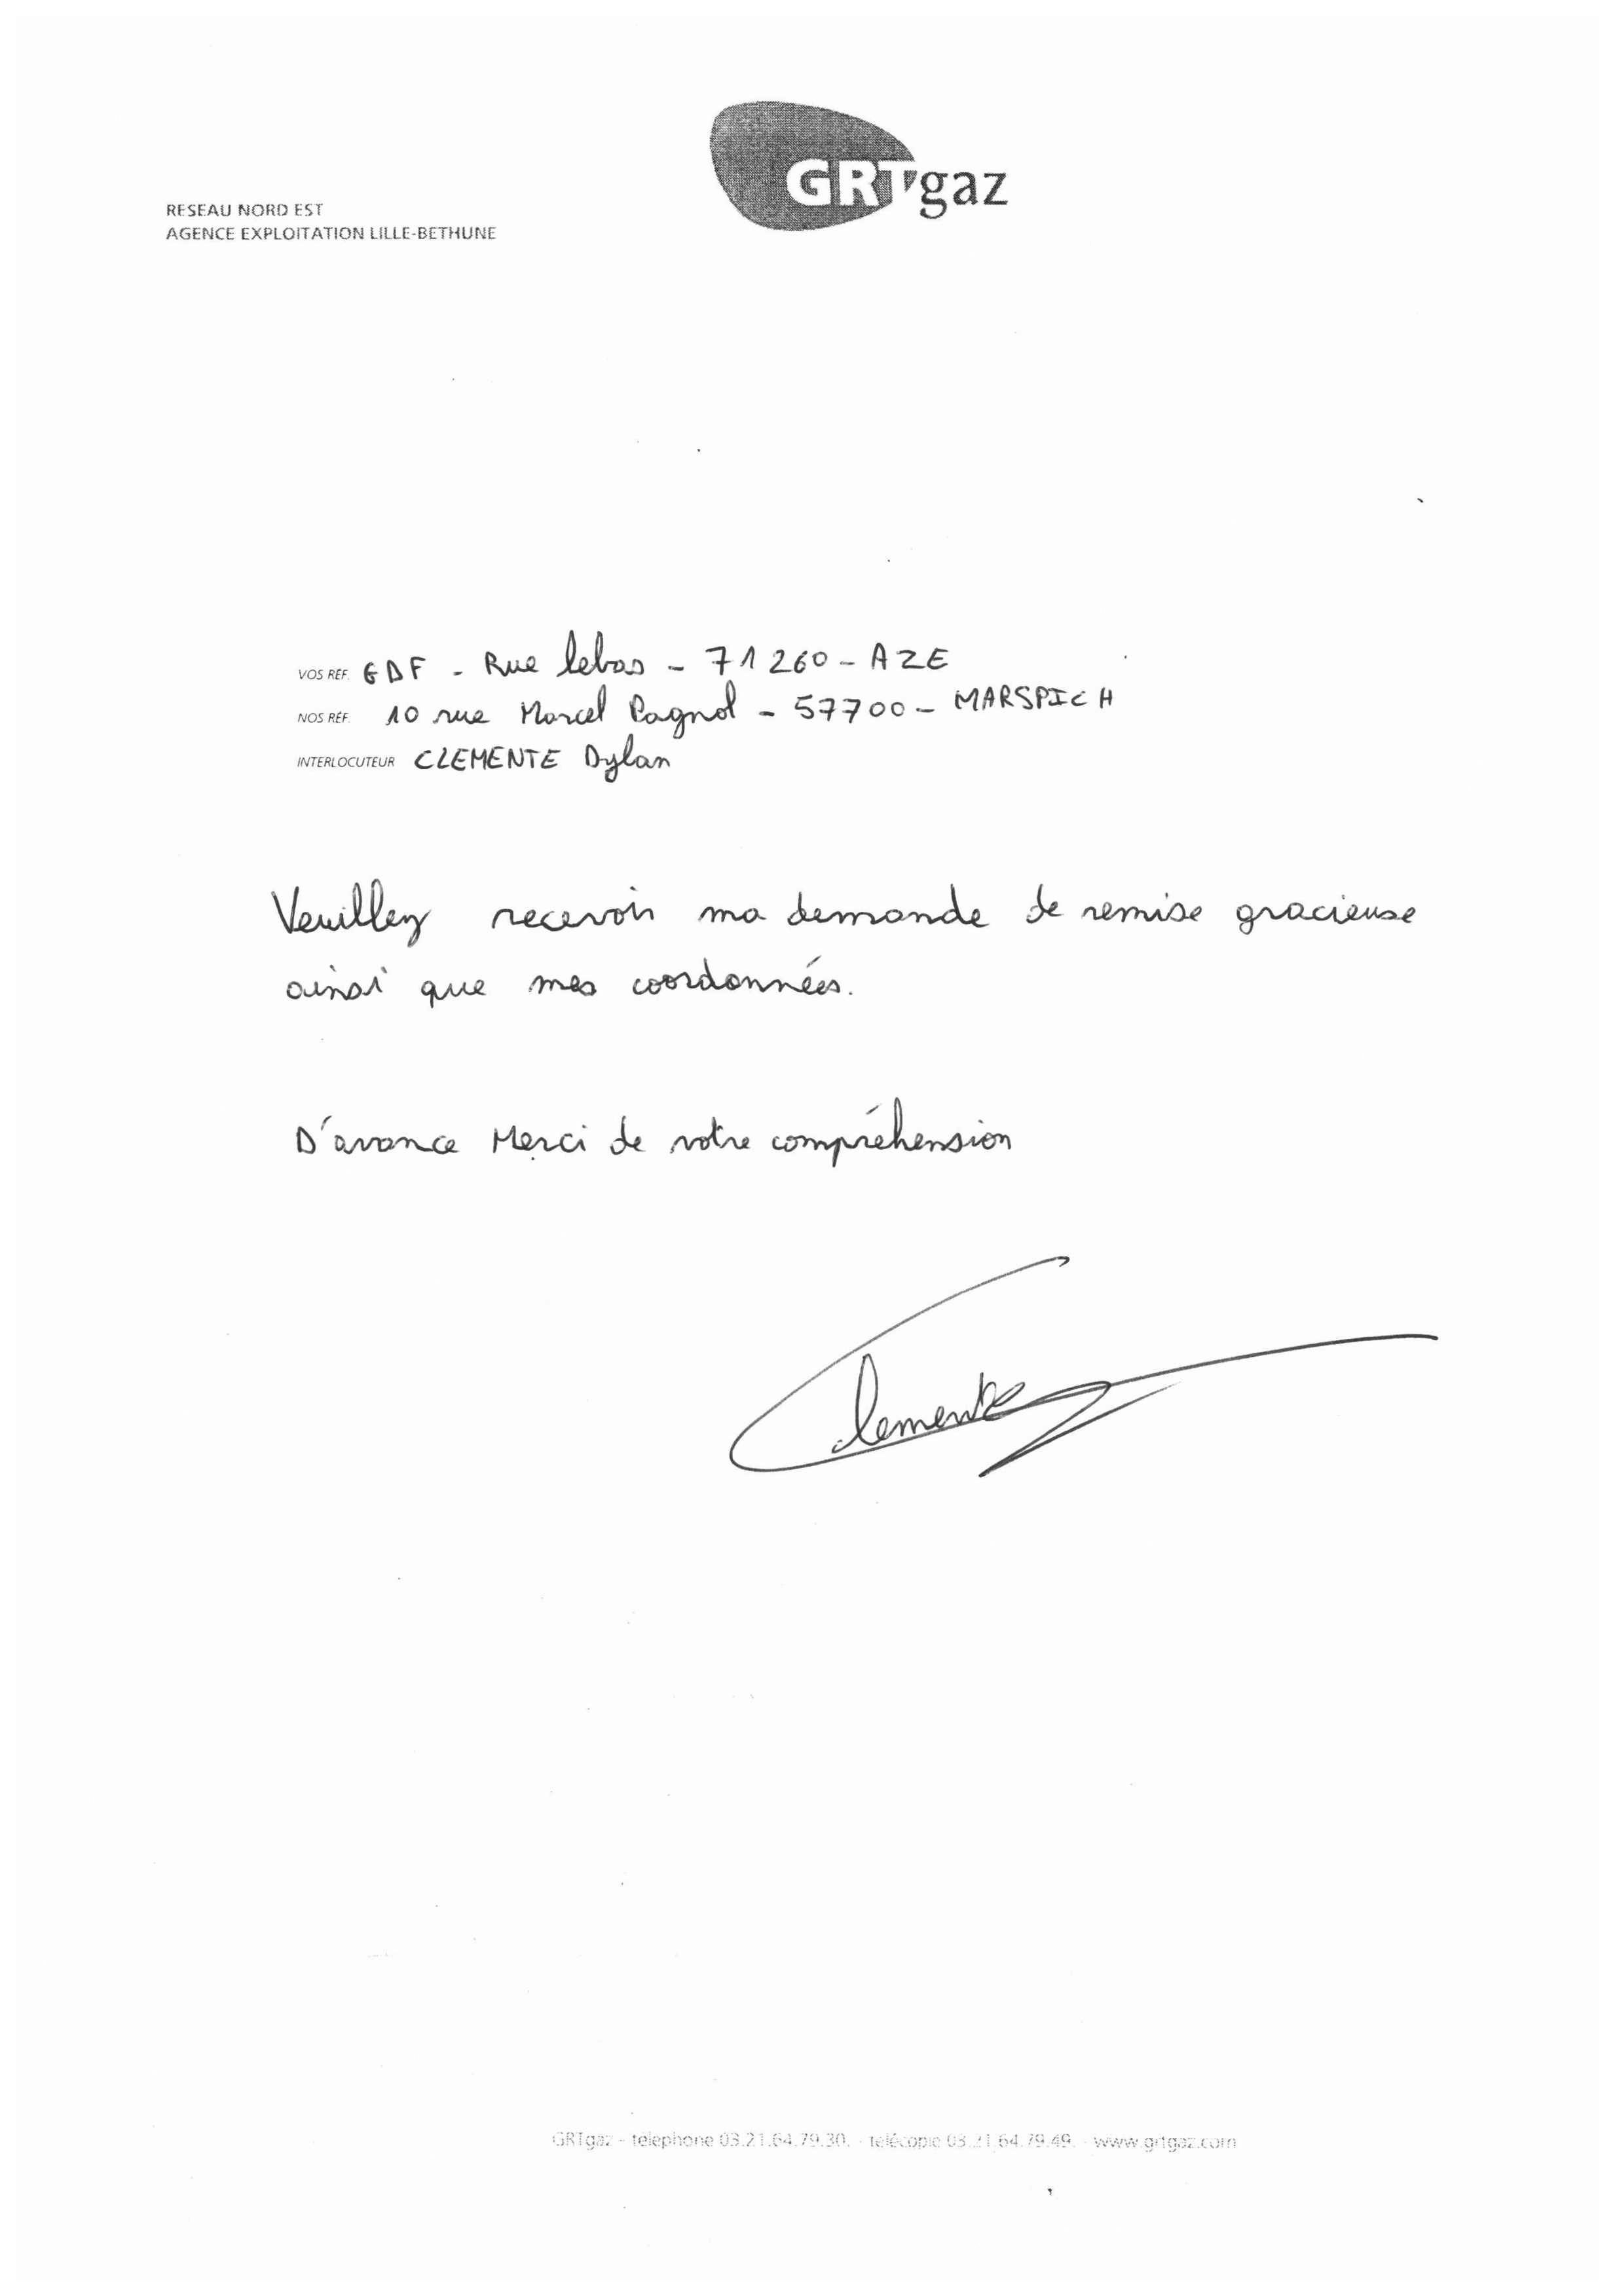 GRTgaz
RESEAU NORD EST
AGENCE EXPLOITATION LILLE-BETHUNE
VOS RÉF. GDF - Rue lebas - 71260 - AZE
NOS RÉF. 10 rue Marcel Pagnol - 57700 - MARSPICH
INTERLOCUTEUR CLEMENTE Dylan
Veuillez recevoir ma demande de remise gracieuse
ainsi que mes coordonnées.
D'avance Merci de votre compréhension
Clemente
GRTgaz - téléphone 03.21.64.79.30. - télécopie 03.21.64.79.49. - www.grtgaz.com